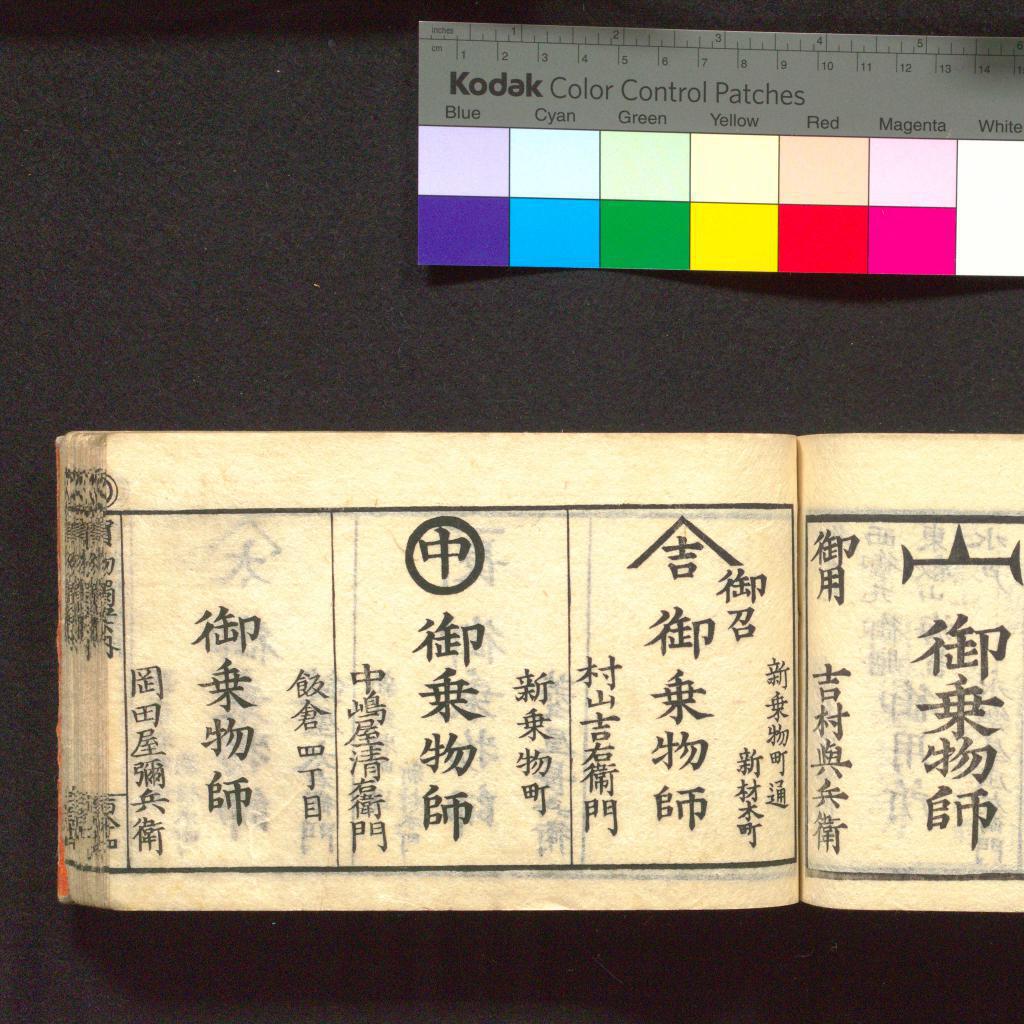 inches 1 2 3 4 5 6
cm 1 2 3 4 5 6 7 8 9 10 11 12 13 14
Kodak Color Control Patches
Blue Cyan Green Yellow Red Magenta White
御乗物師
御用
吉村與兵衛
新乗物町通
新材木町
御召
吉
御乗物師
村山吉右衛門
新乗物町
中
御乗物師
中嶋屋清右衛門
飯倉四丁目
御乗物師
岡田屋彌兵衛